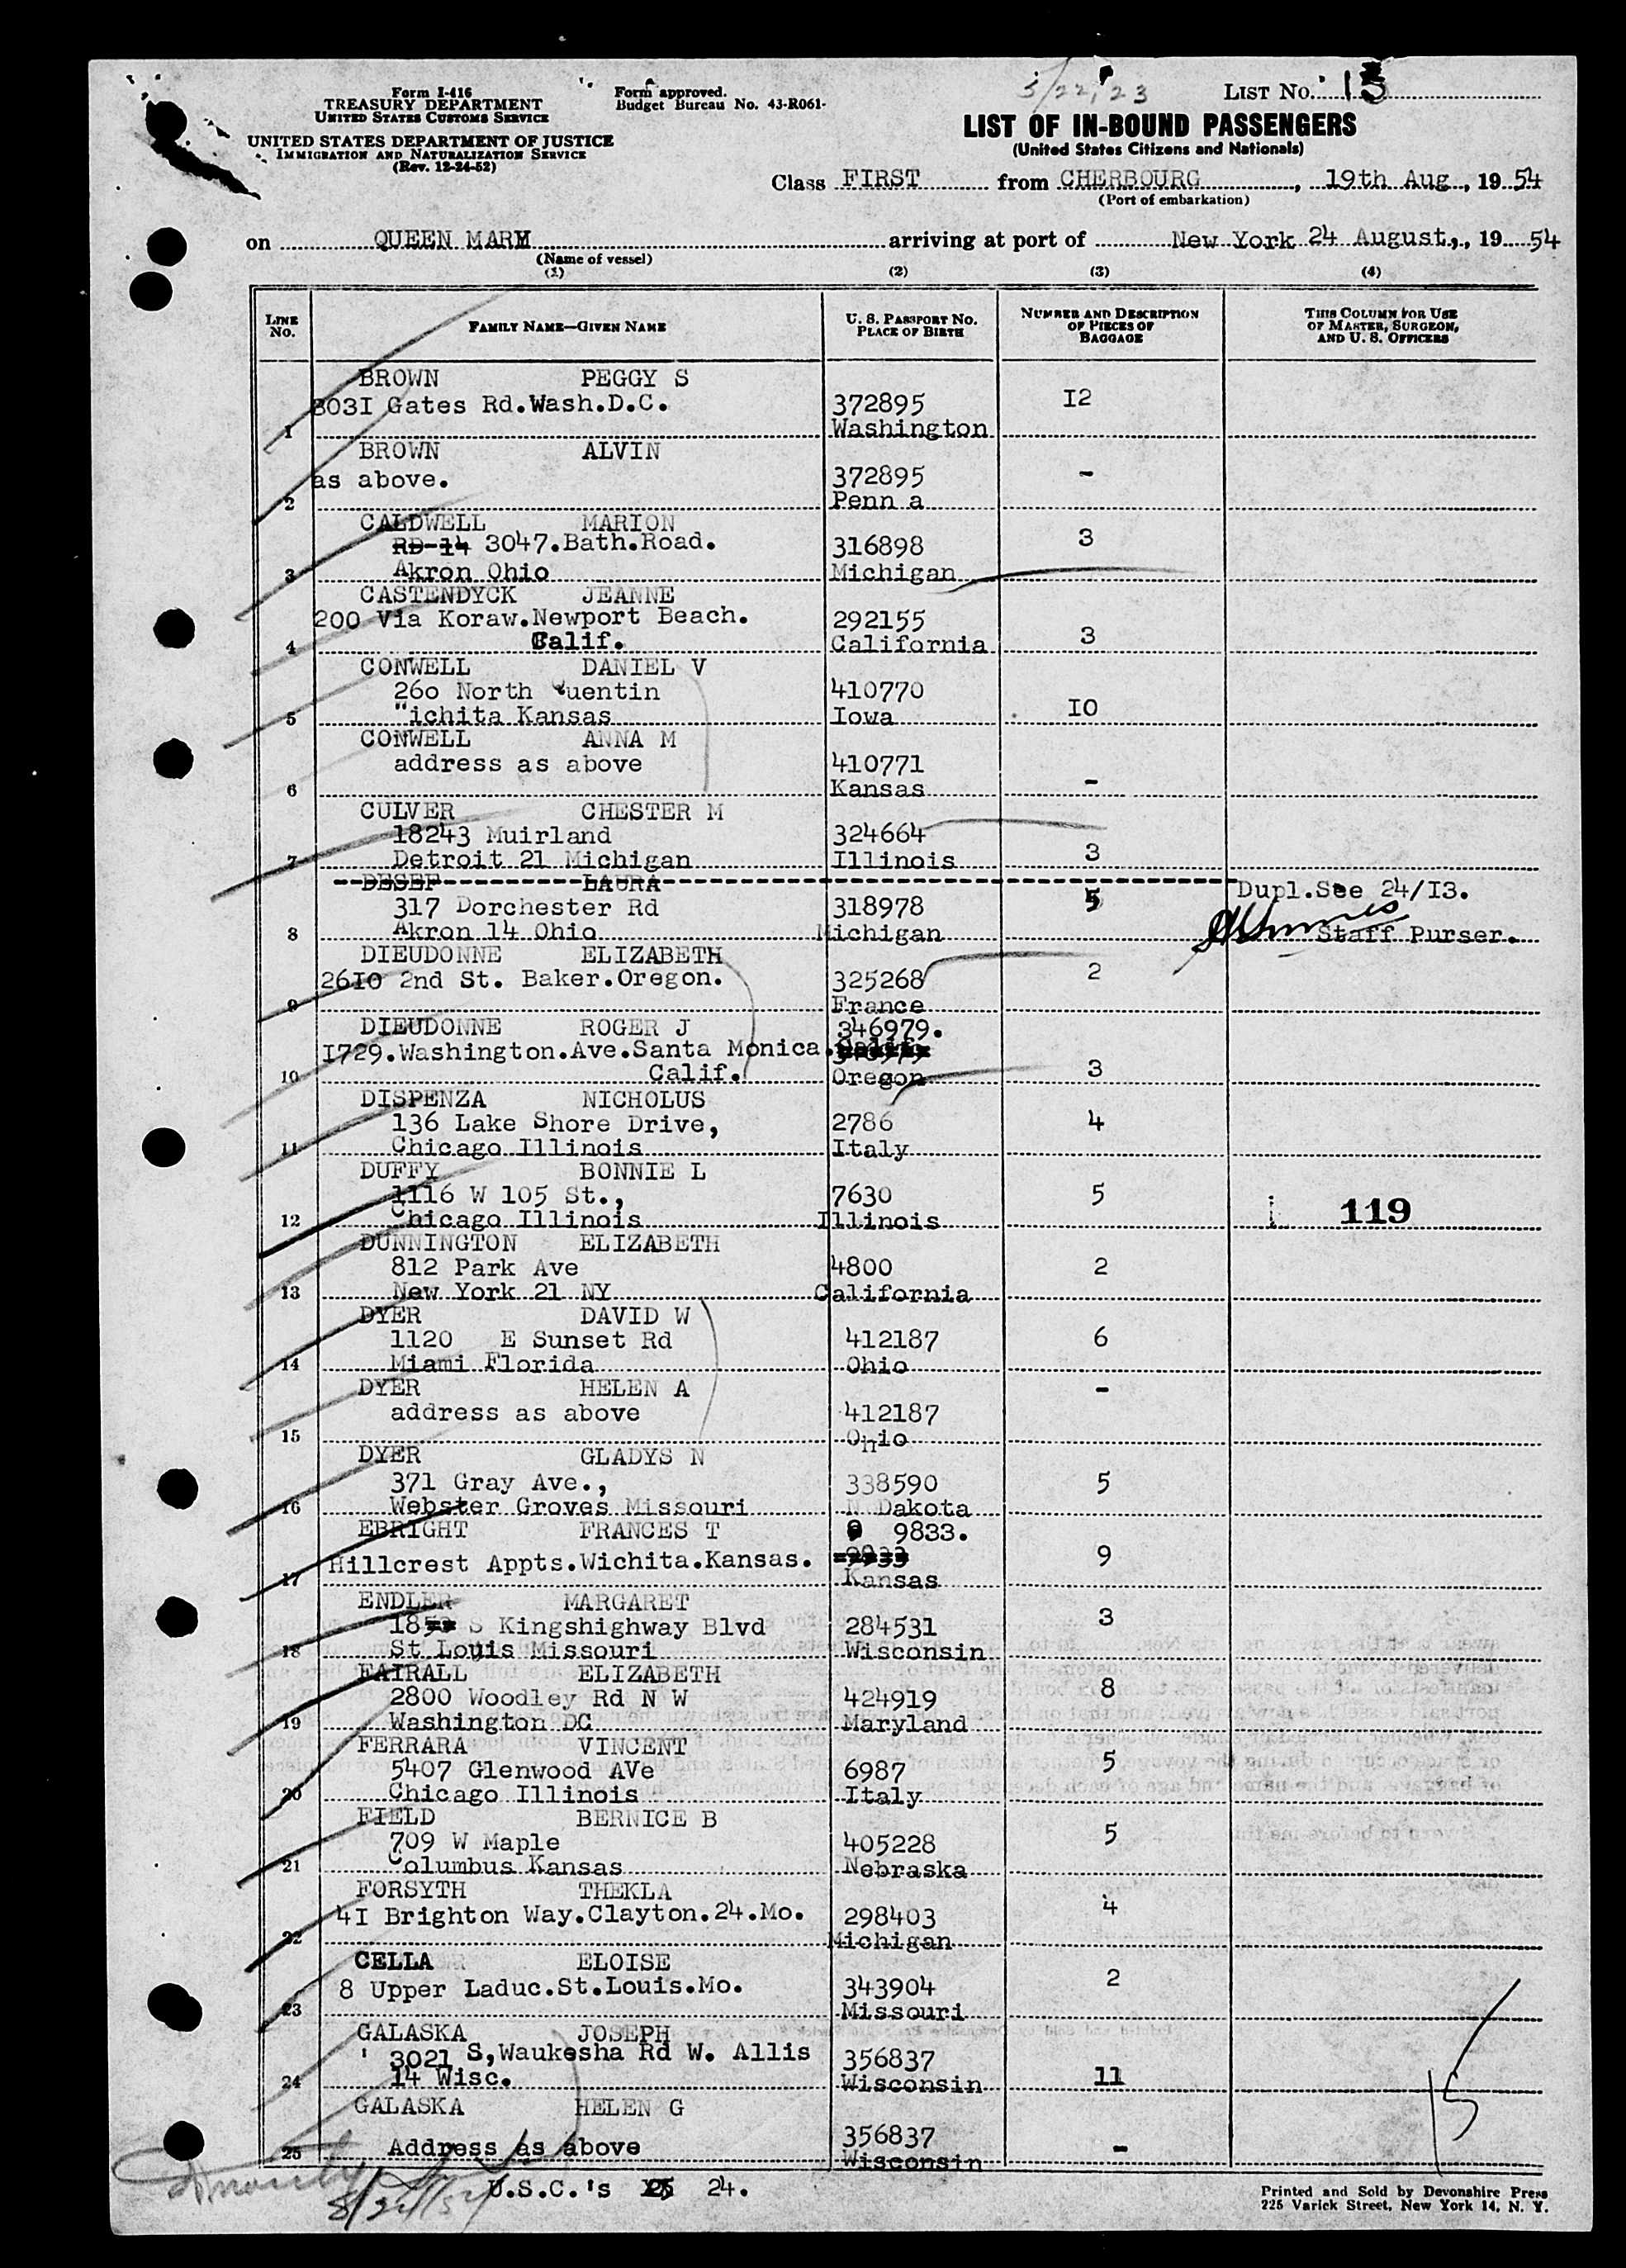 Form I-416
TREASURY DEPARTMENT
UNITED STATES CUSTOMS SERVICE
UNITED STATES DEPARTMENT OF JUSTICE
IMMIGRATION AND NATURALIZATION SERVICE
(Rev. 12-24-52)
Form approved.
Budget Bureau No. 43-R061-
LIST No. 13
LIST OF IN-BOUND PASSENGERS
(United States Citizens and Nationals)
Class FIRST from CHERBOURG, 19th Aug, 1954
(Port of embarkation)
on QUEEN MARY arriving at port of New York 24 August, 1954
(Name of vessel)
(1) (2) (3) (4)
LINE No. FAMILY NAME—GIVEN NAME U. S. PASSPORT No. PLACE OF BIRTH NUMBER AND DESCRIPTION OF PIECES OF BAGGAGE THIS COLUMN FOR USE OF MASTER, SURGEON, AND U. S. OFFICERS
BROWN PEGGY S
3031 Gates Rd.Wash.D.C. 372895 I2
1 Washington
BROWN ALVIN
as above. 372895 -
2 Penn a
CALDWELL MARION
RD-14 3047.Bath.Road. 316898 3
3 Akron Ohio Michigan
CASTENDYCK JEANNE
200 Via Koraw.Newport Beach. 292155
4 Calif. California 3
CONWELL DANIEL V
26o North Quentin 410770
5 "ichita Kansas Iowa IO
CONWELL ANNA M
address as above 410771
6 Kansas -
CULVER CHESTER M
18243 Muirland 324664
7 Detroit 21 Michigan Illinois 3
DESEF LAURA Dupl.See 24/I3.
317 Dorchester Rd 318978 5
8 Akron 14 Ohio Michigan Staff Purser.
DIEUDONNE ELIZABETH
26I0 2nd St. Baker.Oregon. 325268 2
9 France
DIEUDONNE ROGER J 346979.
I729.Washington.Ave.Santa Monica.
10 Calif. Oregon 3
DISPENZA NICHOLUS
136 Lake Shore Drive, 2786 4
11 Chicago Illinois Italy
DUFFY BONNIE L
1116 W 105 St., 7630 5 119
12 Chicago Illinois Illinois
DUNNINGTON ELIZABETH
812 Park Ave 4800 2
13 New York 21 NY California
DYER DAVID W
1120 E Sunset Rd 412187 6
14 Miami Florida Ohio
DYER HELEN A -
address as above 412187
15 Ohio
DYER GLADYS N
371 Gray Ave., 338590 5
16 Webster Groves Missouri N Dakota
EBRIGHT FRANCES T 9833.
Hillcrest Appts.Wichita.Kansas. 9833 9
17 Kansas
ENDLER MARGARET
18 S Kingshighway Blvd 284531 3
18 St Louis Missouri Wisconsin
FAIRALL ELIZABETH
2800 Woodley Rd N W 424919 8
19 Washington DC Maryland
FERRARA VINCENT
5407 Glenwood AVe 6987 5
20 Chicago Illinois Italy
FIELD BERNICE B
709 W Maple 405228 5
21 Columbus Kansas Nebraska
FORSYTH THEKLA
4I Brighton Way.Clayton.24.Mo. 298403 4
22 Michigan
CELLA ELOISE
8 Upper Laduc.St.Louis.Mo. 343904 2
23 Missouri
GALASKA JOSEPH
3021 S,Waukesha Rd W. Allis 356837
24 14 Wisc. Wisconsin 11
GALASKA HELEN G
Address as above 356837 -
25 Wisconsin
15
8/24/54
U.S.C.'s 24.
Printed and Sold by Devonshire Press
225 Varick Street, New York 14, N. Y.